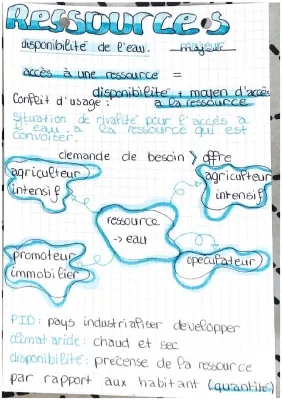 Ressources
disponibilité de l'eau. majeur
accès à une ressource =
disponibilité + moyen d'accès
Conflit d'usage : a la ressource
situation de rivalité pour l'accès a
l'eau, a la ressource qui est
convoiter.
demande de besoin > offre
agriculteur
intensif
agriculteur
intensif
ressource
-> eau
promoteur
immobilier
speculateur
PID: pays industrialiser developper
climat aride: chaud et sec
disponibilité: précense de la ressource
par rapport aux habitant (quantité)